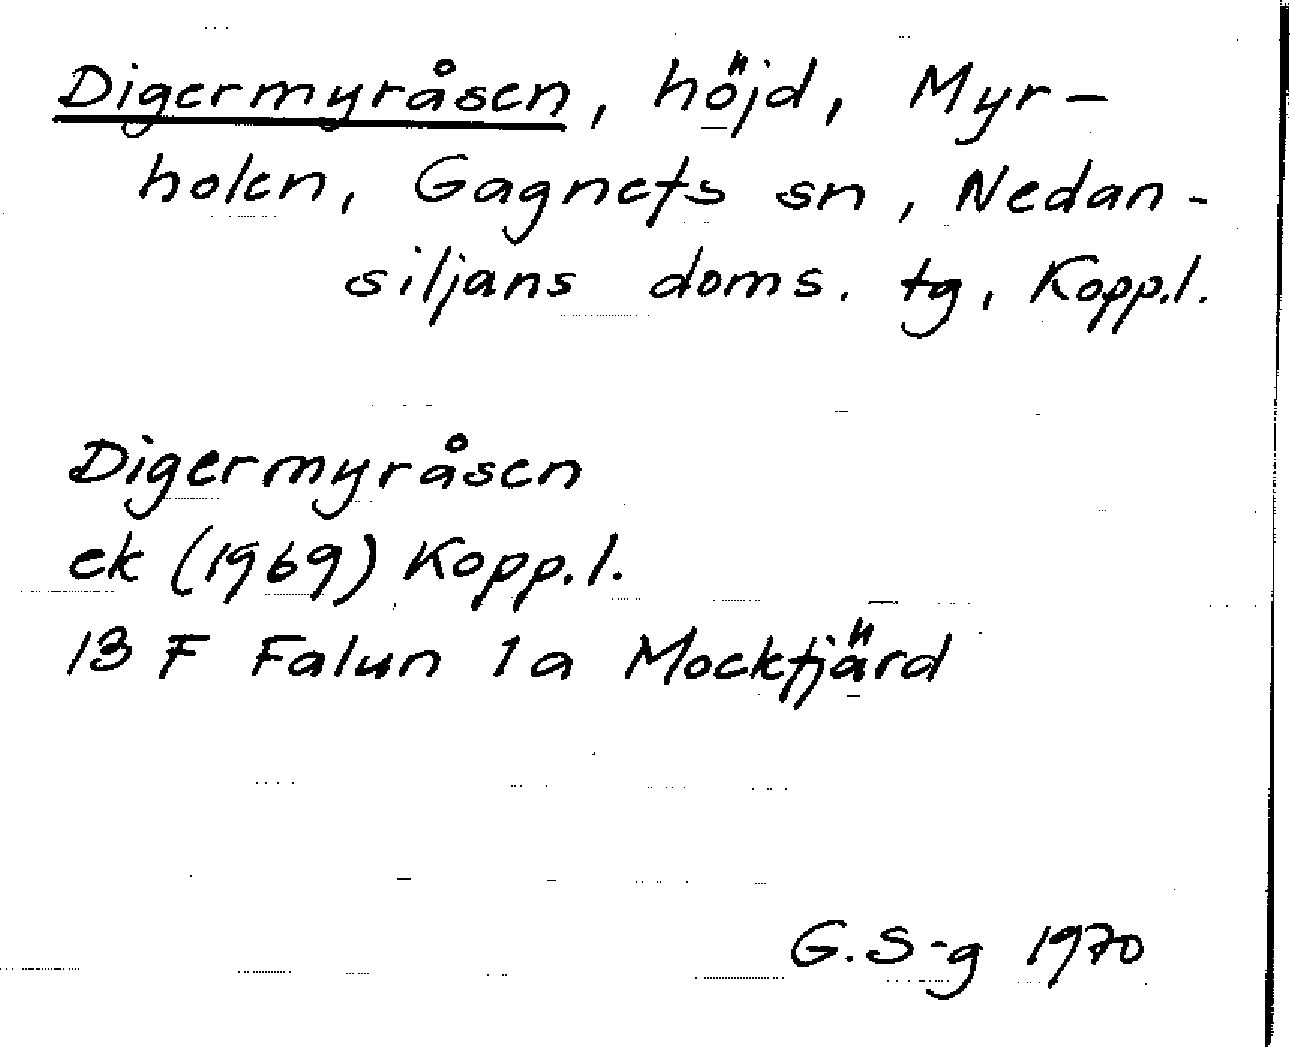 Digermyråsen, höjd, Myr-
holen, Gagnefs sn, Nedan-
siljans doms. tg, Kopp.l.
Digermyråsen
ek (1969) Kopp.l.
13 F Falun 1a Mockfjärd
G.S-g 1970